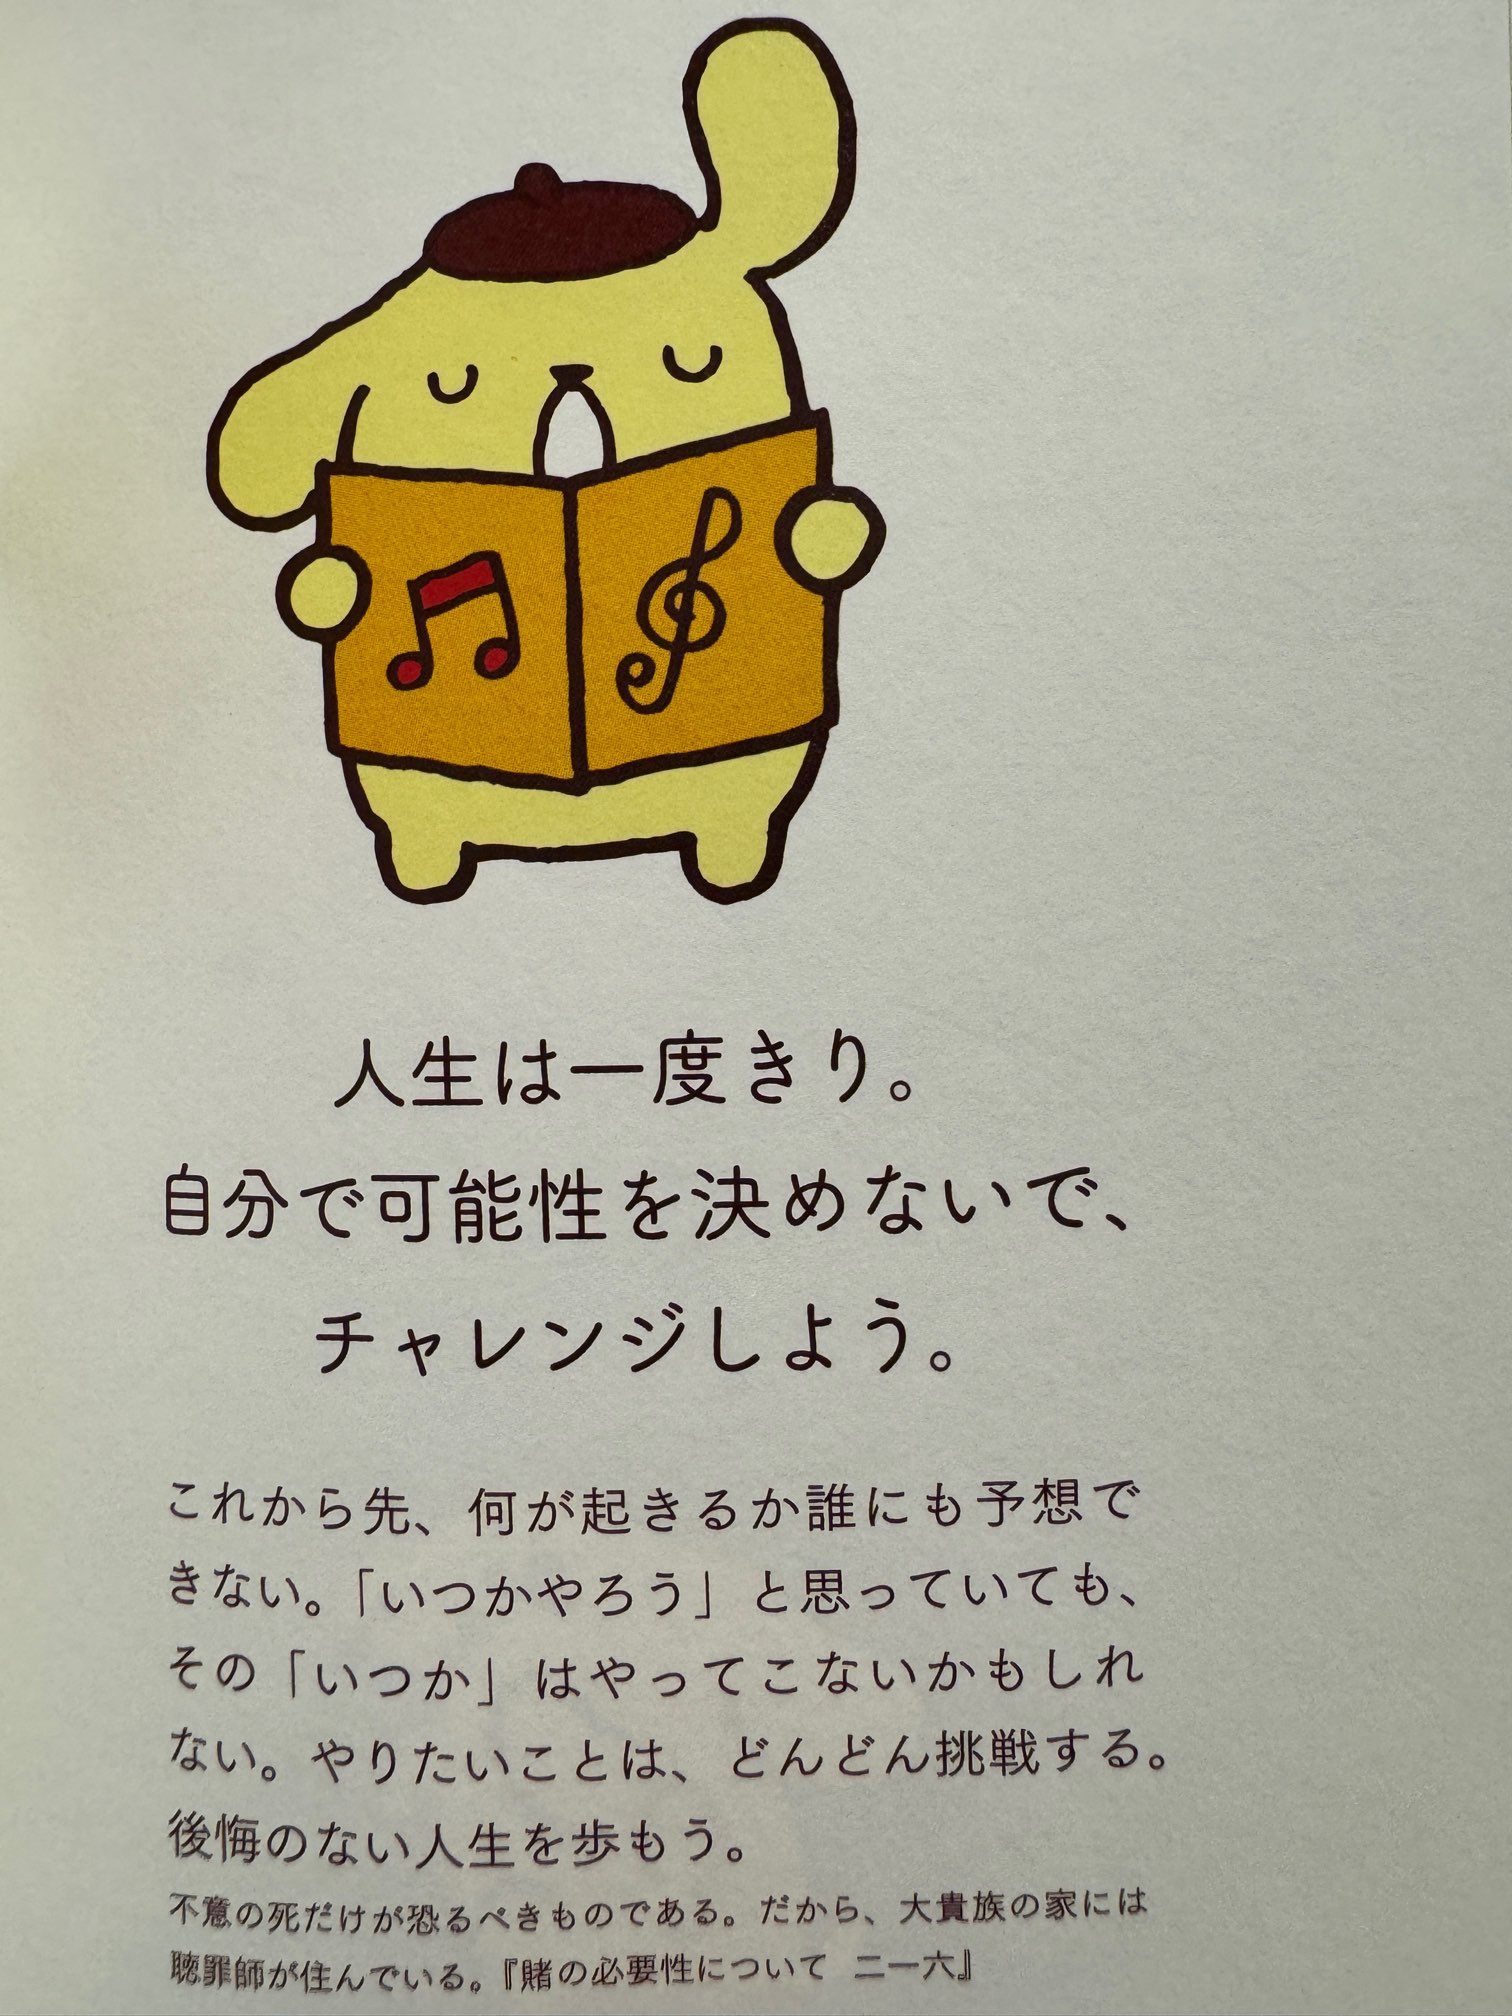 人生は一度きり。
自分で可能性を決めないで、
チャレンジしよう。
これから先、何が起きるか誰にも予想で
きない。「いつかやろう」と思っていても、
その「いつか」はやってこないかもしれ
ない。やりたいことは、どんどん挑戦する。
後悔のない人生を歩もう。
不意の死だけが恐るべきものである。だから、大貴族の家には
聴罪師が住んでいる。『賭の必要性について 二一六』